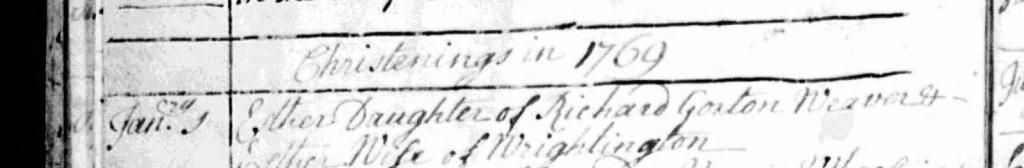 Christenings in 1769
Janry 1 Esther Daughter of Richard Gorton Weaver &
Esther Wife of Wrightington